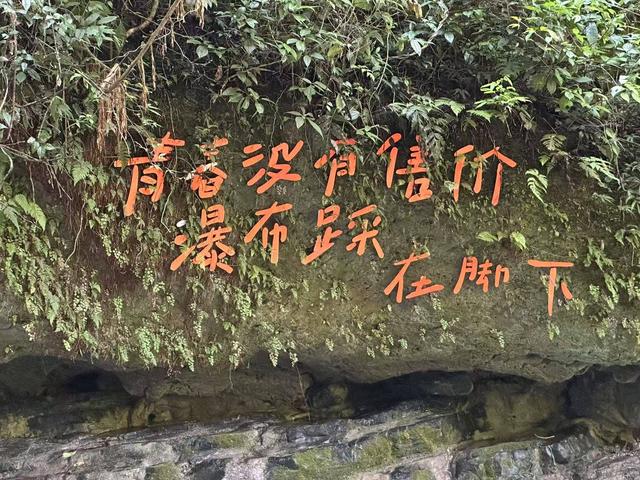 青春没有售价
瀑布踩
在脚下